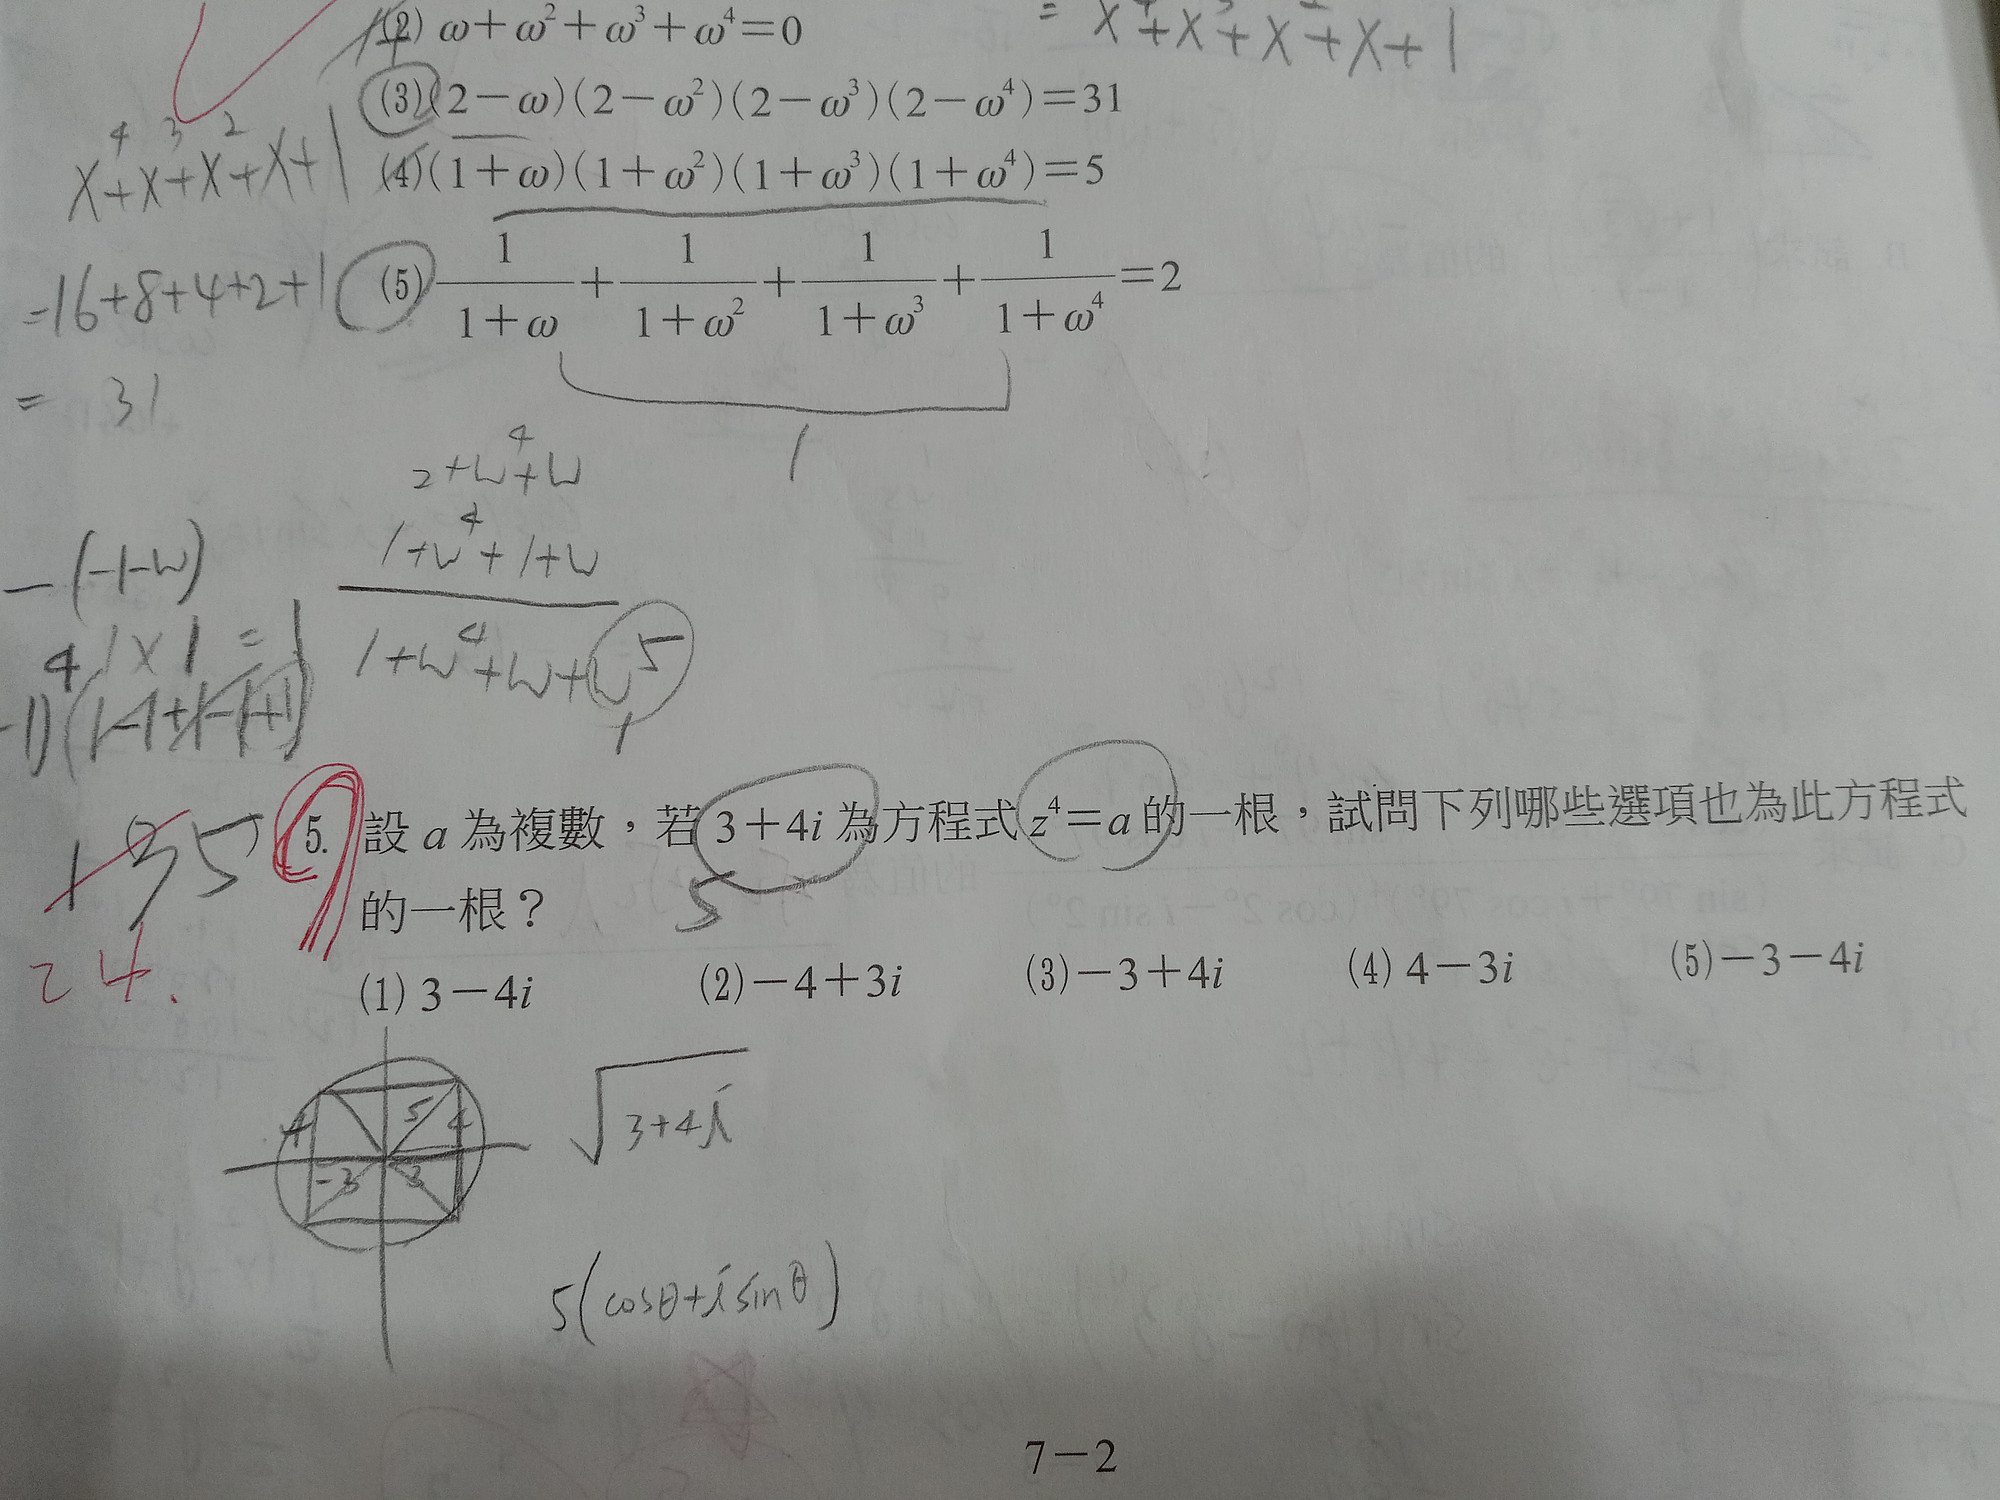 (2) ω+ω²+ω³+ω⁴=0
= x⁴+x³+x²+x+1
(3)(2−ω)(2−ω²)(2−ω³)(2−ω⁴)=31
x⁴+x³+x²+x+1
(4)(1+ω)(1+ω²)(1+ω³)(1+ω⁴)=5
(5) 1/(1+ω) + 1/(1+ω²) + 1/(1+ω³) + 1/(1+ω⁴) =2
=16+8+4+2+1
= 31
1
2+w⁴+w
1+w⁴+1+w
1+w⁴+w+w⁵
1
−(−1−w)
4 1×1=1
5. 設 a 為複數，若 3+4i 為方程式 z⁴=a 的一根，試問下列哪些選項也為此方程式
的一根？
5
35
24.
(1) 3−4i (2)−4+3i (3)−3+4i (4) 4−3i (5)−3−4i
4 5 4
−3 3
√3+4i
5(cosθ+i sinθ)
7−2